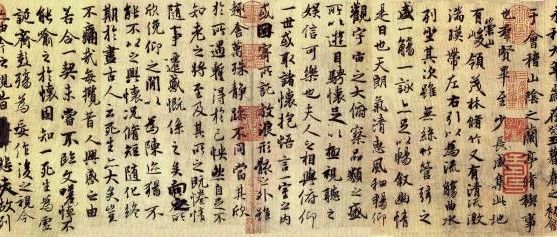 于會稽山陰之蘭亭脩稧事
也群賢畢至少長咸集此地
有崇山峻領茂林脩竹又有清流激
湍暎帶左右引以為流觴曲水
列坐其次雖無絲竹管弦之
盛一觴一詠亦足以暢敘幽情
是日也天朗氣清惠風和暢仰
觀宇宙之大俯察品類之盛
所以遊目騁懷足以極視聽之
娛信可樂也夫人之相與俯仰
一世或取諸懷抱悟言一室之內
或因寄所託放浪形骸之外雖
趣舍萬殊靜躁不同當其欣
於所遇暫得於己怏然自足不
知老之將至及其所之既惓情
隨事遷感慨係之矣向之所
欣俛仰之間以為陳跡猶不
能不以之興懷況脩短隨化終
期於盡古人云死生亦大矣豈
不痛哉每攬昔人興感之由
若合一契未嘗不臨文嗟悼不
能喻之於懷固知一死生為虛
誕齊彭殤為妄作後之視今
由今之視昔悲夫故列